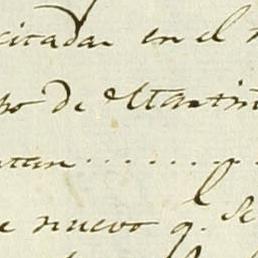 citadas en el
po de Martin
atan . . . . . . . . . .
e nuevo q.e Se